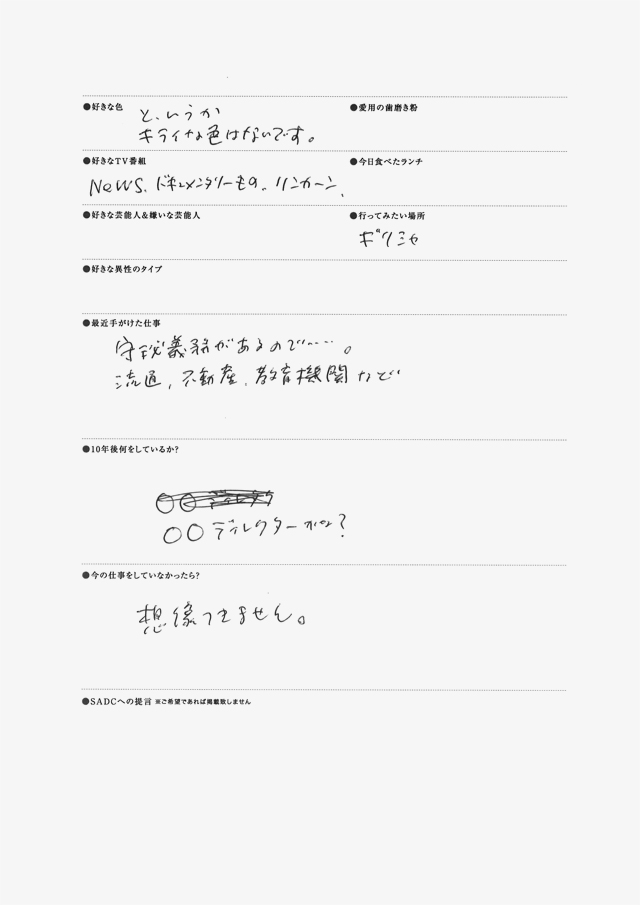 ●好きな色
●愛用の歯磨き粉
と、いうか
キライな色はないです。
●好きなTV番組
●今日食べたランチ
NeWS、ドキュメンタリーもの。リンカーン、
●好きな芸能人&嫌いな芸能人
●行ってみたい場所
ギリシャ
●好きな異性のタイプ
●最近手がけた仕事
守秘義務があるので……。
流通、不動産、教育機関など
●10年後何をしているか?
○○ディレクターかな?
●今の仕事をしていなかったら?
想像つきません。
●SADCへの提言 ※ご希望であれば掲載致しません